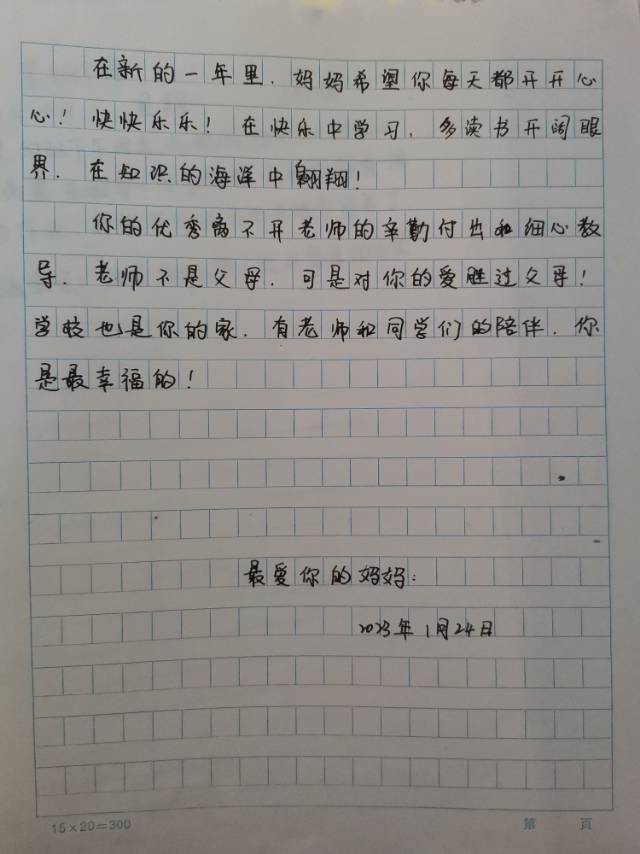 在新的一年里，妈妈希望你每天都开开心
心！快快乐乐！在快乐中学习，多读书开阔眼
界，在知识的海洋中翱翔！
你的优秀离不开老师的辛勤付出和细心教
导，老师不是父母，可是对你的爱胜过父母！
学校也是你的家，有老师和同学们的陪伴，你
是最幸福的！
最爱你的妈妈：
2023年1月24日
15×20=300
第 页